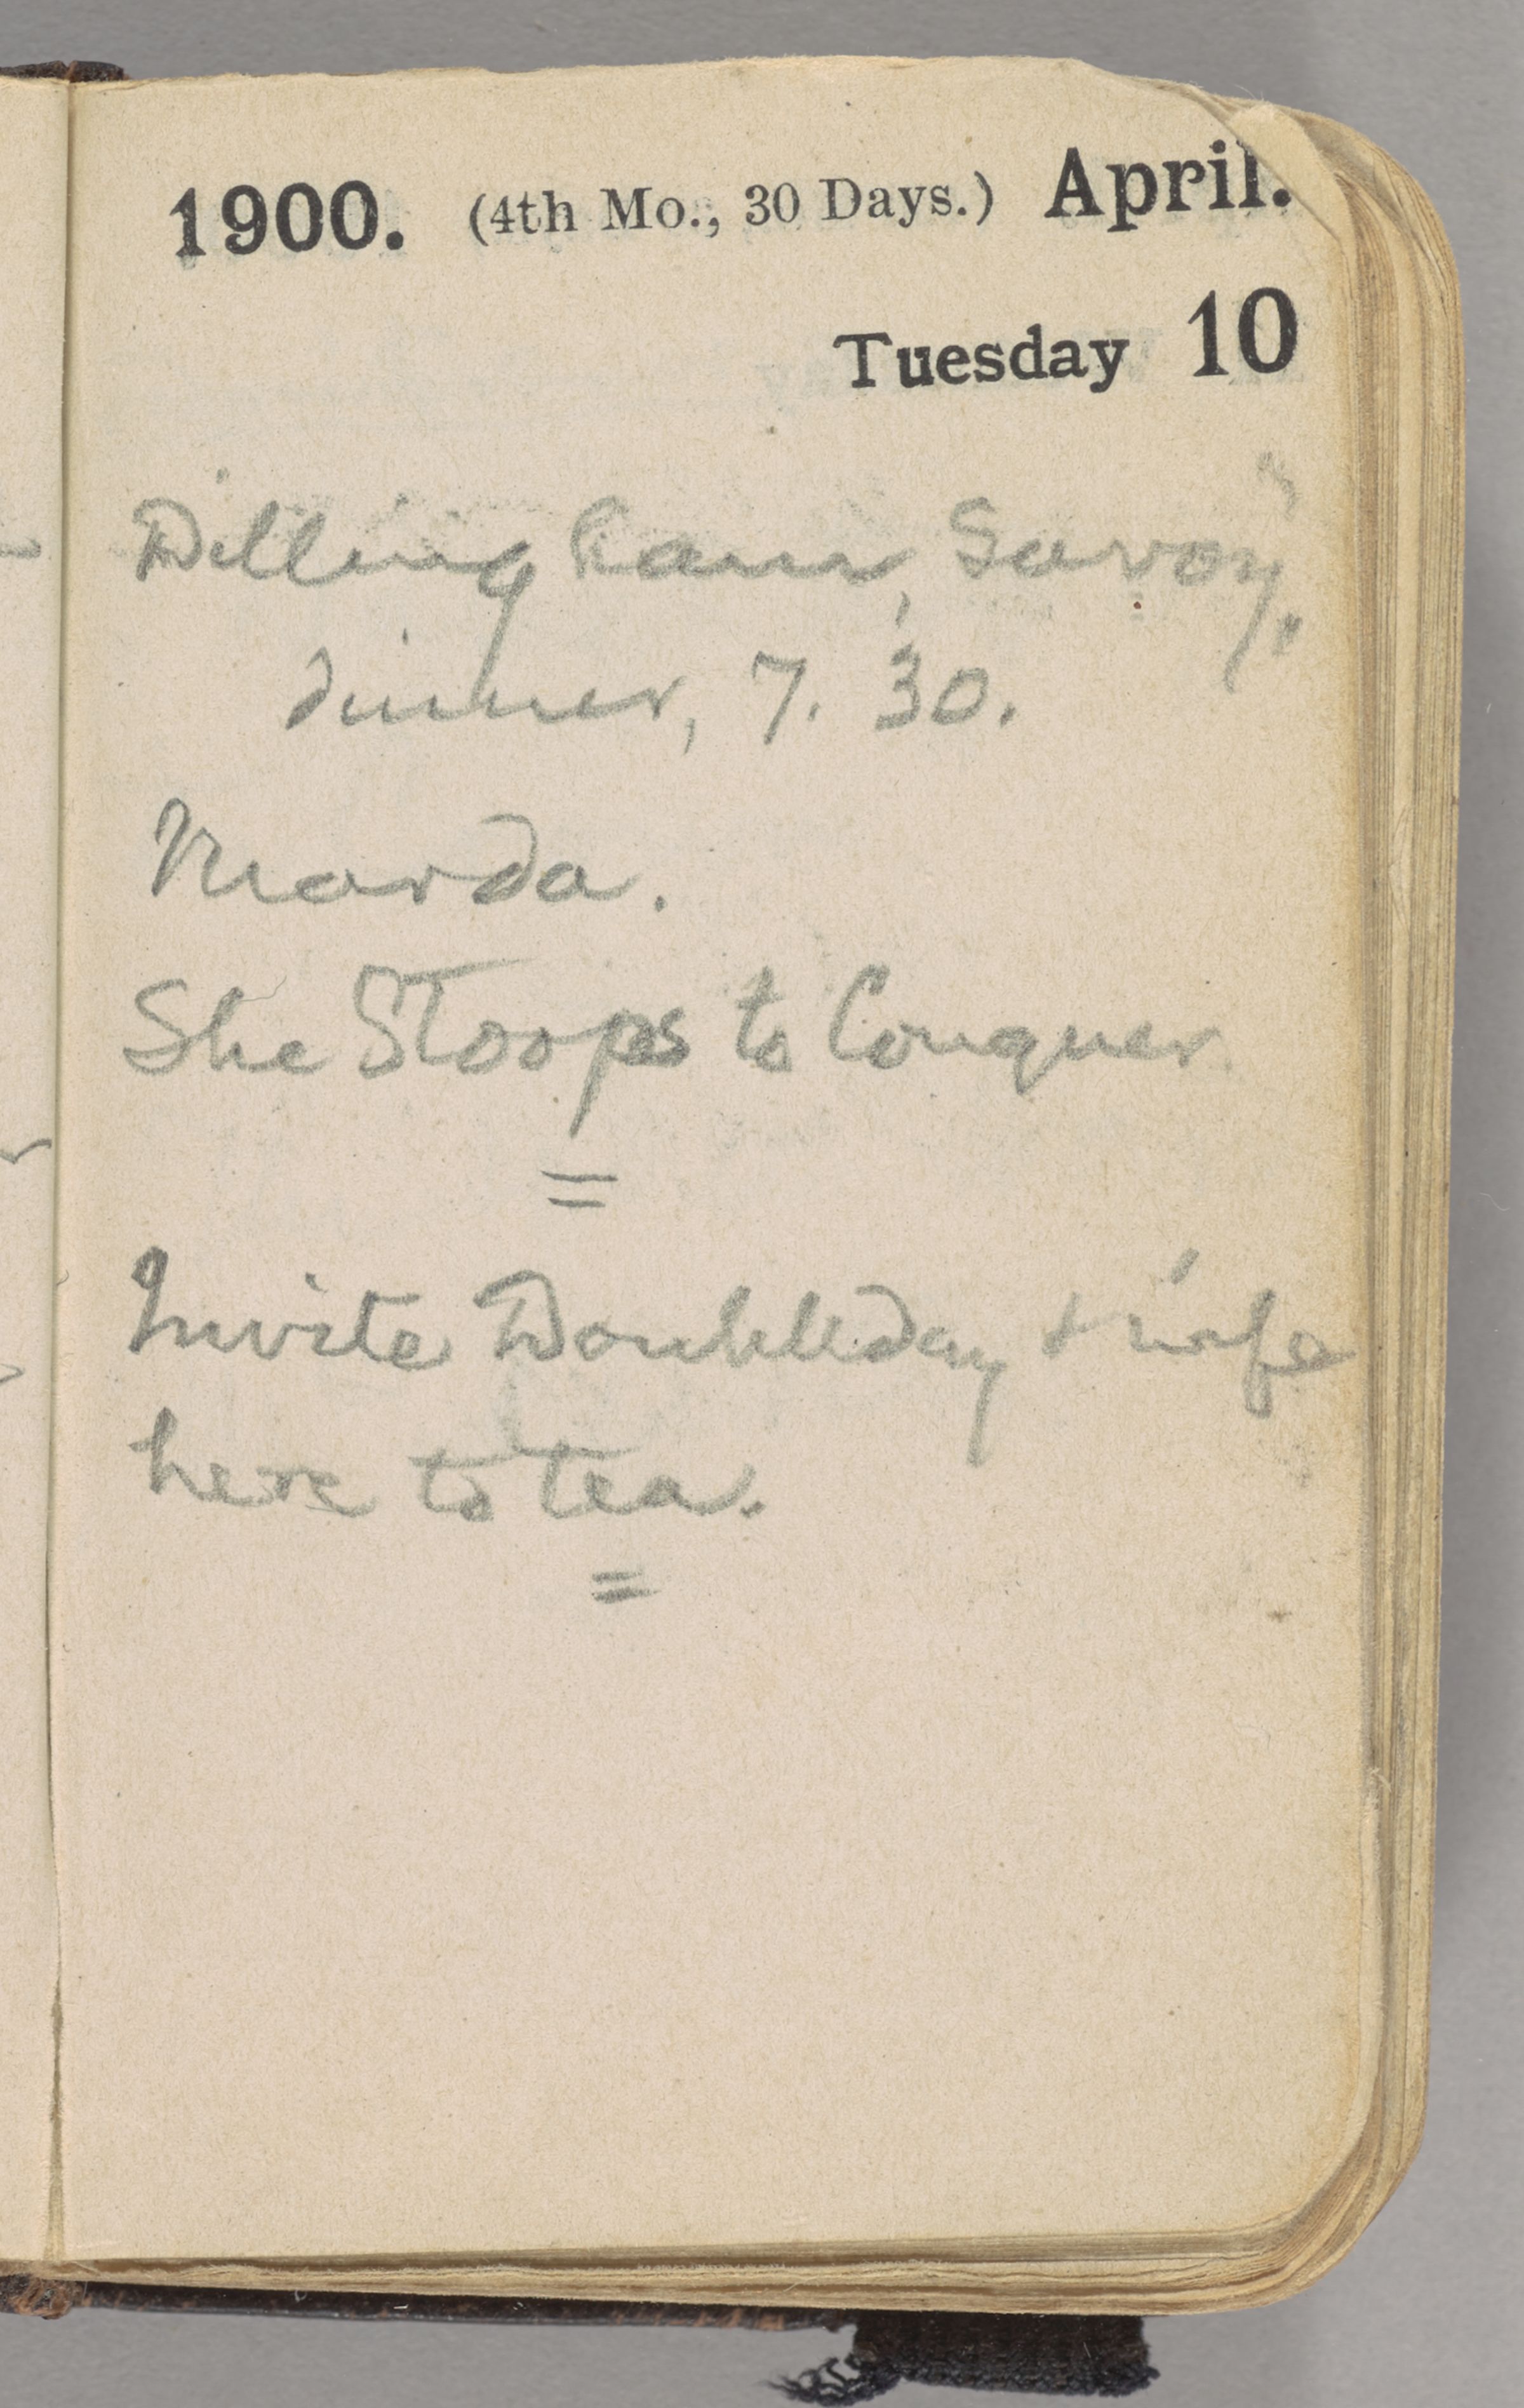 1900. (4th Mo., 30 Days.) April.
Tuesday 10
Dillingham, Savoy,
dinner, 7.30.
Marda.
She Stoops to Conquer
=
Invite Doubleday & wife
here to tea.
=